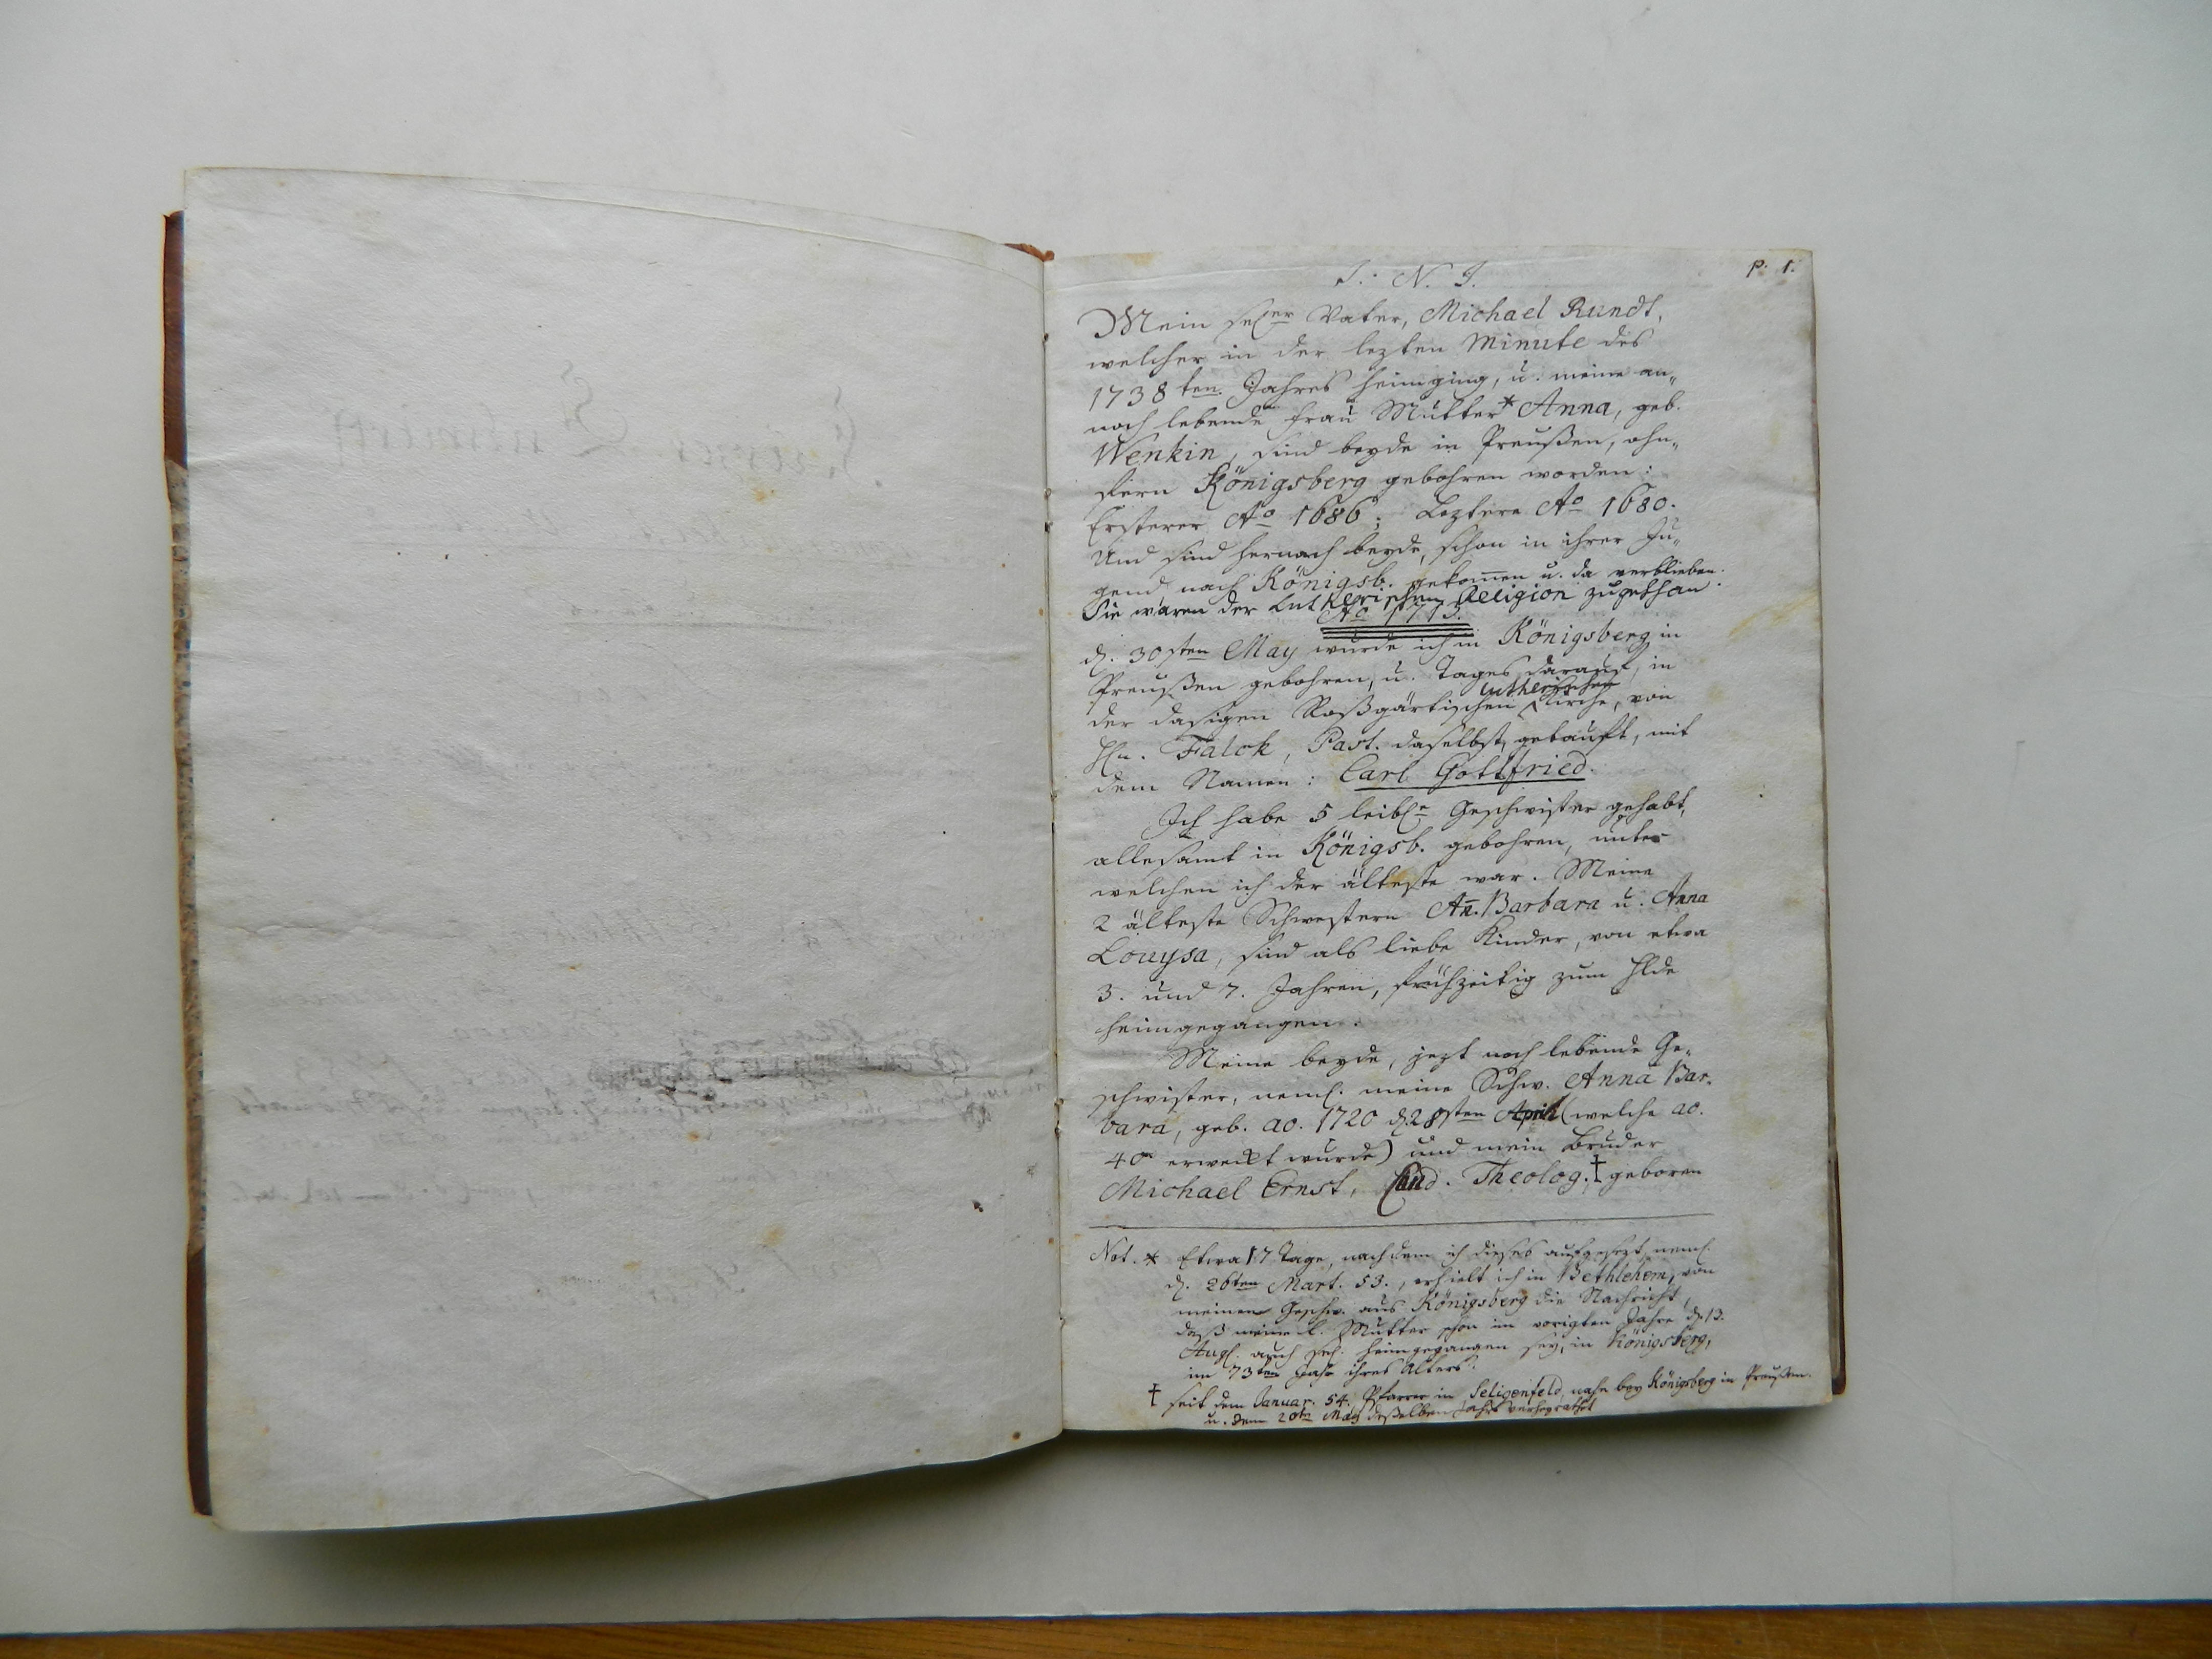 p. 1.
I. N. J.
Mein sel^er Vater, Michael Rundt,
welcher in der lezten Minute des
1738ten Jahres heimging, u. meine an„
noch lebende Frau Mutter* Anna, geb.
Wenkin, sind beyde in Preußen, ohn„
fern Königsberg gebohren worden:
Ersterer Aº 1686; Leztere Aº 1680.
Und sind hernach beyde, schon in ihrer Ju„
gend nach Königsb. gekom̅en u. da verblieben.
Sie waren der Lutherischen Religion zugethan.
Aº 1713.
d. 30sten May wurde ich in Königsberg in
Preußen gebohren, u. Tages darauf, in
der dasigen Roßgärtischen lutherischen Kirche, von
Hn. Falck, Past. daselbst, getauft, mit
dem Namen: Carl Gottfried.
Ich habe 5 leibl^e Geschwister gehabt,
allesamt in Königsb. gebohren, unter
welchen ich der älteste war. Meine
2 älteste Schwestern An̅. Barbara u. Anna
Louysa, sind als liebe Kinder, von etwa
3. und 7. Jahren, frühzeitig zum Hlde
heimgegangen.
Meine beyde, jezt noch lebende Ge„
schwister, neml. meine Schw. Anna Bar„
bara, geb. ao. 1720 d. 28sten April (welche ao.
40 erweckt wurde) und mein Bruder
Michael Ernst, Cand. Theolog.† geboren
Not. * Etwa 17 Tage, nachdem ich dieses aufgesezt, neml.
d. 26ten Mart. 53., erhielt ich in Bethlehem, von
meinen Geschw. aus Königsberg die Nachricht,
daß meine l. Mutter schon im vorigten Jahre d. 13.
Aug. auch sel. heimgegangen sey, in Königsberg,
im 73ten Jahr ihres Alters.
† seit dem Januar. 54. Pfarrer in Seligenfeld, nahe bey Königsberg in Preußen.
u. dem 20ten May deßelben Jahrs verheyrathet